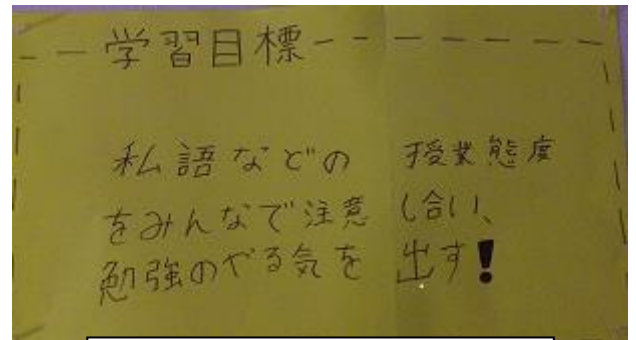 学習目標
私語などの 授業態度
をみんなで注意 し合い、
勉強のやる気を 出す!